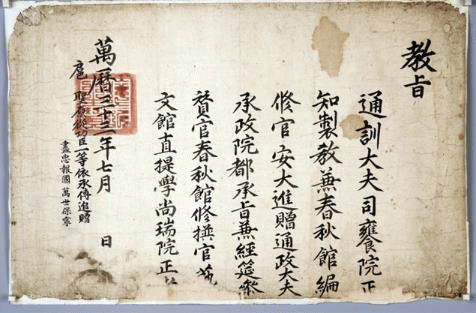 教旨
通訓大夫司饔院正
知製教兼春秋館編
修官安大進贈通政大夫
承政院都承旨兼經筵參
贊官春秋館修撰官藝
文館直提學尚瑞院正者
萬曆三十三年七月 日
扈聖原從功臣一等依承傳追贈
盡忠報國 萬世保寧